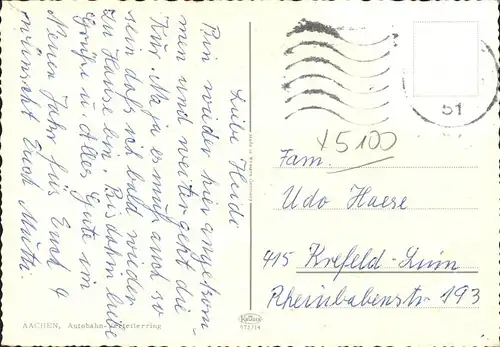 Liebe Heide
Bin wieder hier angekom-
men und weiter geht die
Kur. Na ja es muß auch so
sein daß ich bald wieder
zu Hause bin. Bis dahin liebe
Grüße u. alles Gute im
Neuen Jahr für Euch 4
wünscht Euch Mutti.
AACHEN, Autobahn-
51
x5100
Fam.
Udo Haese
415 Krefeld-Linn
Rheinbabenstr 193